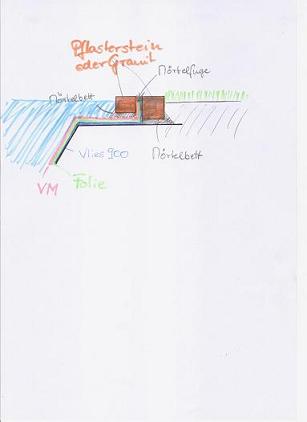 Pflasterstein
oder Granit
Mörtelfuge
Mörtelbett
Mörtelbett
Vlies 900
VM
Folie